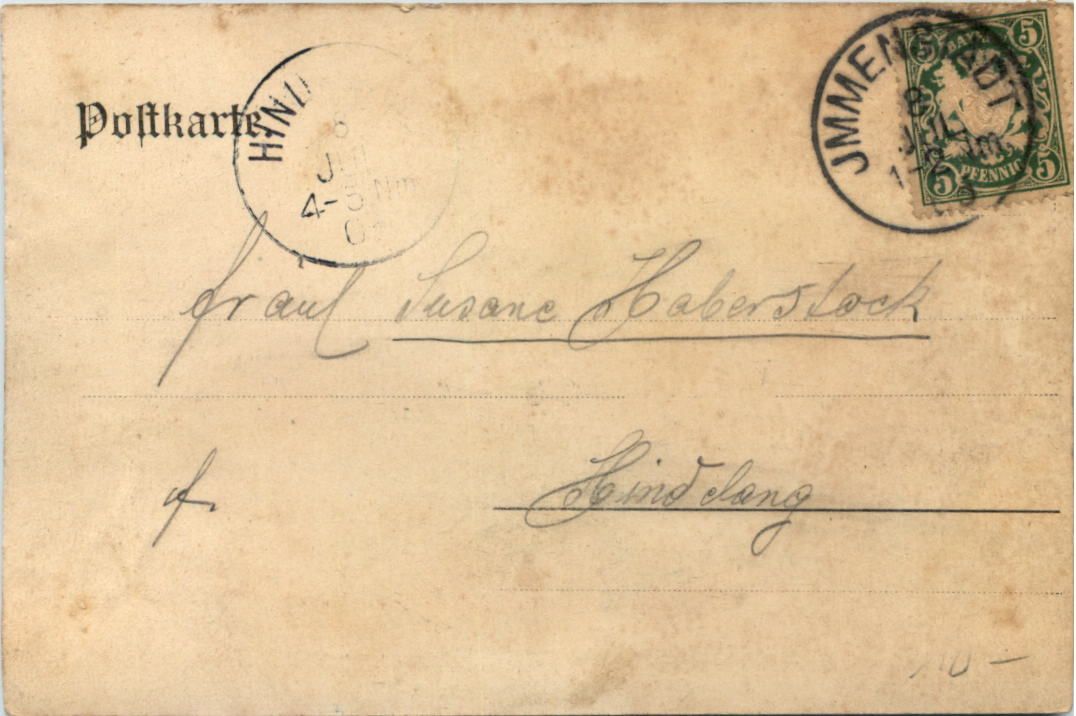 Postkarte
HIND
8
JUL
4-5 Nm
04
JMMENSTADT
8
JUL
1-2 Nm
5 BAYERN 5
5 PFENNIG 5
Fräul Susane Haberstock
Hindelang
10 –